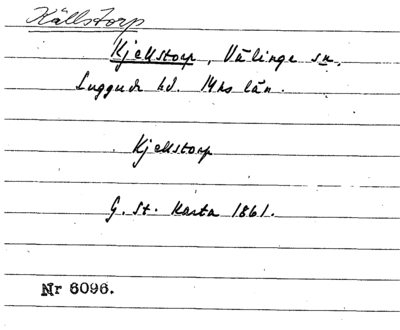 Källstorp
Kjellstorp, Välinge sn.
Luggude hd. Mhs län.
Kjellstorp
G. St. Karta 1861.
Nr 6096.